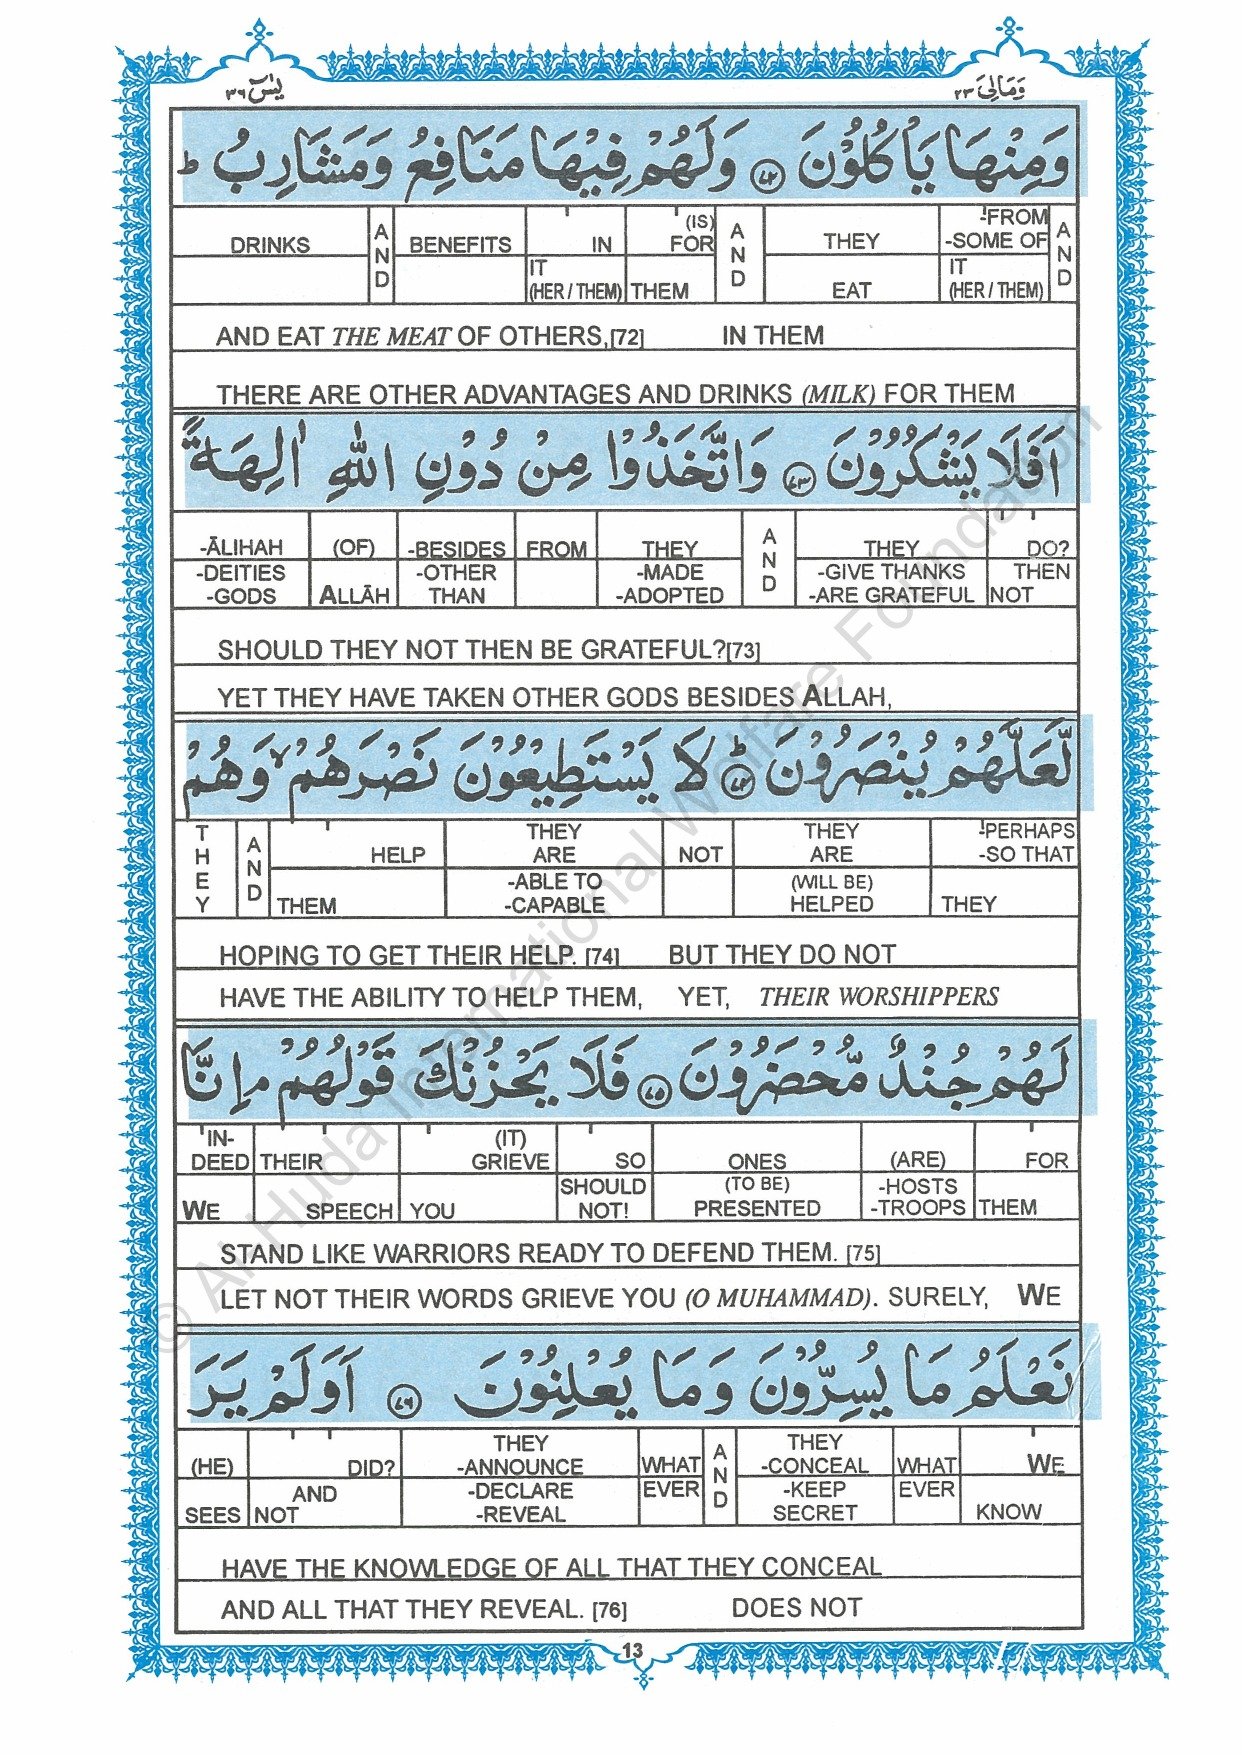 يٰسٓ ٣٦
وَمَالِيَ ٢٣
وَمِنْهَا يَأْكُلُوْنَ ﴿٧٢﴾ وَلَهُمْ فِيْهَا مَنَافِعُ وَمَشَارِبُ ؕ
DRINKS AND BENEFITS IN (IS) FOR AND THEY -FROM -SOME OF AND
IT (HER / THEM) THEM EAT IT (HER / THEM)
AND EAT THE MEAT OF OTHERS,[72] IN THEM
THERE ARE OTHER ADVANTAGES AND DRINKS (MILK) FOR THEM
اَفَلَا يَشْكُرُوْنَ ﴿٧٣﴾ وَاتَّخَذُوْا مِنْ دُوْنِ اللّٰهِ اٰلِهَةً
-ĀLIHAH (OF) -BESIDES FROM THEY AND THEY DO?
-DEITIES -GODS ALLĀH -OTHER THAN -MADE -ADOPTED -GIVE THANKS -ARE GRATEFUL THEN NOT
SHOULD THEY NOT THEN BE GRATEFUL?[73]
YET THEY HAVE TAKEN OTHER GODS BESIDES ALLAH,
لَّعَلَّهُمْ يُنْصَرُوْنَ ﴿٧٤﴾ؕ لَا يَسْتَطِيْعُوْنَ نَصْرَهُمْ ۙ وَهُمْ
THEY AND HELP THEY ARE NOT THEY ARE -PERHAPS -SO THAT
THEM -ABLE TO -CAPABLE (WILL BE) HELPED THEY
HOPING TO GET THEIR HELP. [74] BUT THEY DO NOT
HAVE THE ABILITY TO HELP THEM, YET, THEIR WORSHIPPERS
لَهُمْ جُنْدٌ مُّحْضَرُوْنَ ﴿٧٥﴾ فَلَا يَحْزُنْكَ قَوْلُهُمْ ۘ اِنَّا
IN-DEED THEIR (IT) GRIEVE SO ONES (ARE) FOR
WE SPEECH YOU SHOULD NOT! (TO BE) PRESENTED -HOSTS -TROOPS THEM
STAND LIKE WARRIORS READY TO DEFEND THEM. [75]
LET NOT THEIR WORDS GRIEVE YOU (O MUHAMMAD). SURELY, WE
نَعْلَمُ مَا يُسِرُّوْنَ وَمَا يُعْلِنُوْنَ ﴿٧٦﴾ اَوَلَمْ يَرَ
(HE) DID? THEY -ANNOUNCE WHAT AND THEY -CONCEAL WHAT WE
SEES AND NOT -DECLARE -REVEAL EVER -KEEP SECRET EVER KNOW
HAVE THE KNOWLEDGE OF ALL THAT THEY CONCEAL
AND ALL THAT THEY REVEAL. [76] DOES NOT
13
© Al-Huda International Welfare Foundation